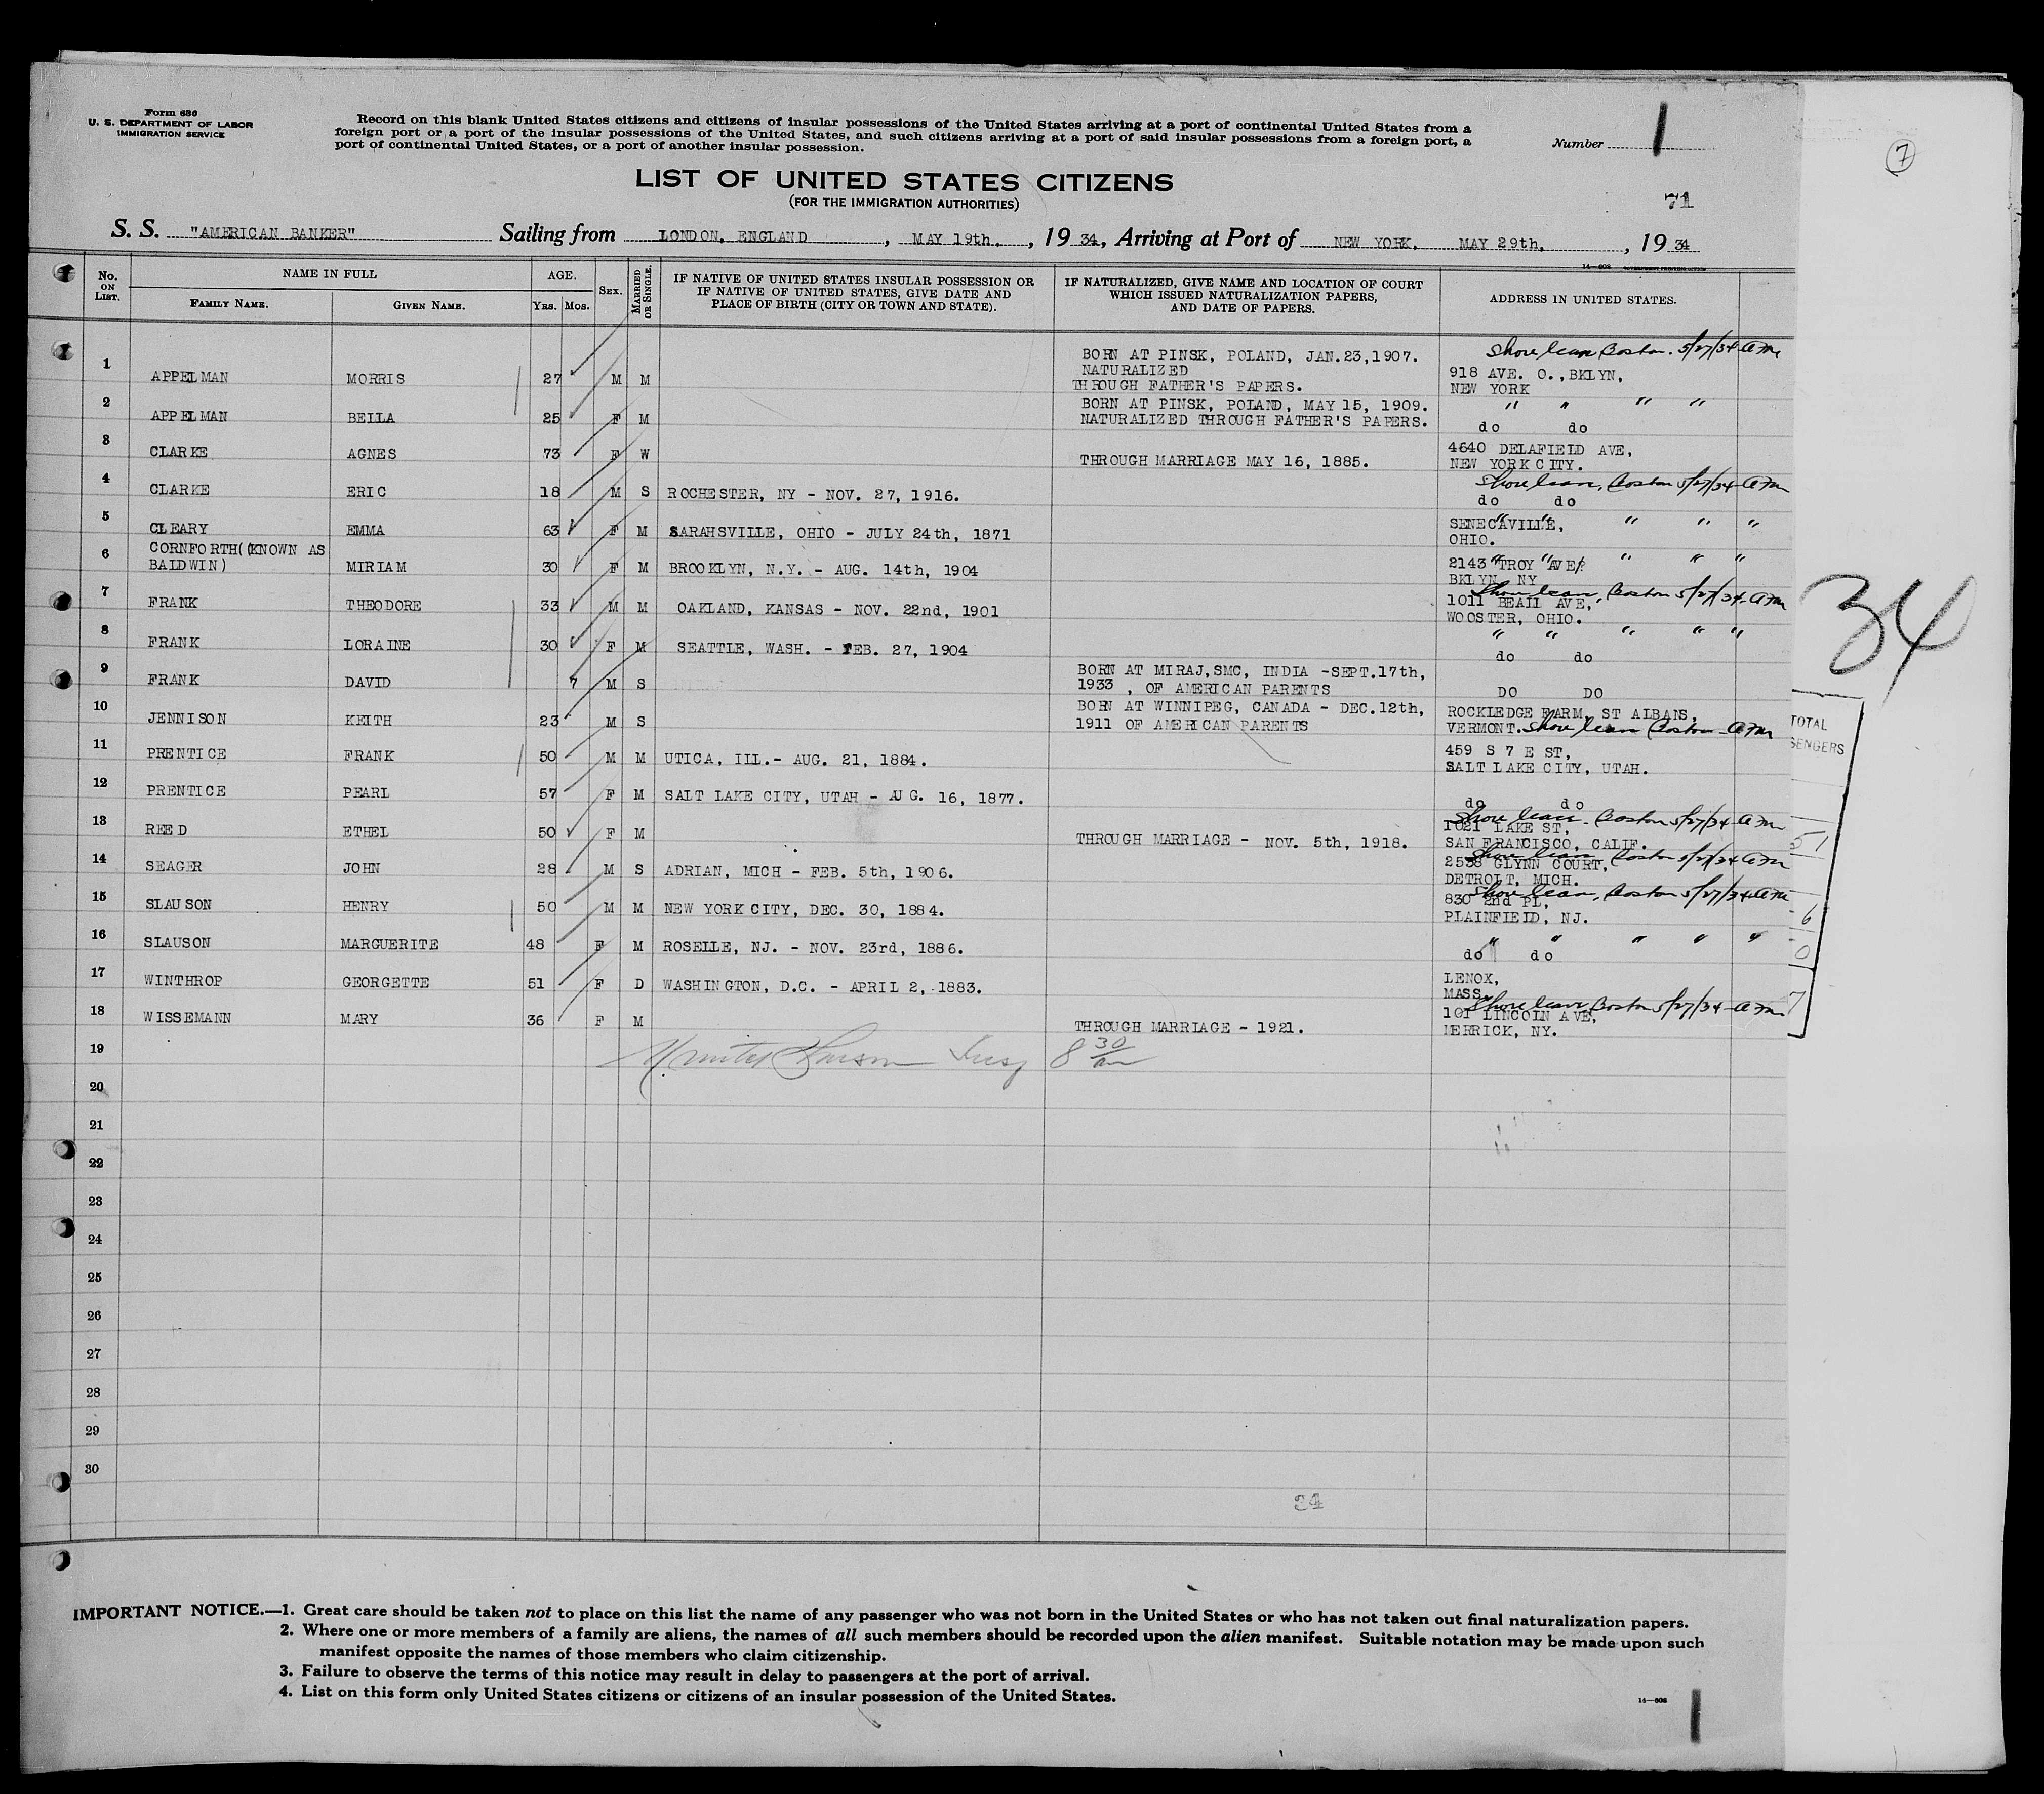 Form 630
U. S. DEPARTMENT OF LABOR
IMMIGRATION SERVICE
Record on this blank United States citizens and citizens of insular possessions of the United States arriving at a port of continental United States from a
foreign port or a port of the insular possessions of the United States, and such citizens arriving at a port of said insular possessions from a foreign port, a
port of continental United States, or a port of another insular possession.
Number 1
7
LIST OF UNITED STATES CITIZENS
(FOR THE IMMIGRATION AUTHORITIES)
71
S. S. "AMERICAN BANKER" Sailing from LONDON, ENGLAND, MAY 19th., 1934, Arriving at Port of NEW YORK. MAY 29th., 1934
14—608 GOVERNMENT PRINTING OFFICE
No. ON LIST. NAME IN FULL FAMILY NAME. GIVEN NAME. AGE. YRS. MOS. SEX. MARRIED OR SINGLE. IF NATIVE OF UNITED STATES INSULAR POSSESSION OR IF NATIVE OF UNITED STATES, GIVE DATE AND PLACE OF BIRTH (CITY OR TOWN AND STATE). IF NATURALIZED, GIVE NAME AND LOCATION OF COURT WHICH ISSUED NATURALIZATION PAPERS, AND DATE OF PAPERS. ADDRESS IN UNITED STATES.
Shore leave Boston. 5/27/34
1 APPELMAN MORRIS 27 M M BORN AT PINSK, POLAND, JAN.23,1907. NATURALIZED THROUGH FATHER'S PAPERS. 918 AVE. O.,BKLYN, NEW YORK
" " " "
2 APPELMAN BELLA 25 F M BORN AT PINSK, POLAND, MAY 15, 1909. NATURALIZED THROUGH FATHER'S PAPERS. do do
3 CLARKE AGNES 73 F W THROUGH MARRIAGE MAY 16, 1885. 4640 DELAFIELD AVE, NEW YORK CITY.
Shore leave, Boston 5/27/34
4 CLARKE ERIC 18 M S ROCHESTER, NY - NOV. 27, 1916. do do
5 CLEARY EMMA 63 F M SARAHSVILLE, OHIO - JULY 24th, 1871 SENECAVILLE, OHIO.
" " " " "
6 CORNFORTH((KNOWN AS BALDWIN) MIRIAM 30 F M BROOKLYN, N.Y. - AUG. 14th, 1904 2143 TROY AVE, BKLYN NY
" " " " "
Shore leave, Boston 5/27/34
7 FRANK THEODORE 33 M M OAKLAND, KANSAS - NOV. 22nd, 1901 1011 BEALL AVE, WOOSTER, OHIO.
" " " " "
8 FRANK LORAINE 30 F M SEATTLE, WASH. - FEB. 27, 1904 do do
9 FRANK DAVID 7 M S BORN AT MIRAJ,SMC, INDIA -SEPT.17th, 1933 , OF AMERICAN PARENTS DO DO
10 JENNISON KEITH 23 M S BORN AT WINNIPEG, CANADA - DEC.12th, 1911 OF AMERICAN PARENTS ROCKLEDGE FARM, ST ALBANS, VERMONT. Shore leave Boston
11 PRENTICE FRANK 50 M M UTICA, ILL.- AUG. 21, 1884. 459 S 7 E ST, SALT LAKE CITY, UTAH.
12 PRENTICE PEARL 57 F M SALT LAKE CITY, UTAH - AUG. 16, 1877. do do
Shore leave - Boston 5/27/34
13 REED ETHEL 50 F M THROUGH MARRIAGE - NOV. 5th, 1918. 1021 LAKE ST, SAN FRANCISCO, CALIF.
Shore leave, Boston 5/27/34
14 SEAGER JOHN 28 M S ADRIAN, MICH - FEB. 5th, 1906. 2538 GLYNN COURT, DETROIT, MICH.
Shore leave, Boston, 5/27/34
15 SLAUSON HENRY 50 M M NEW YORK CITY, DEC. 30, 1884. 830 2nd PL, PLAINFIELD, NJ.
" " " " "
16 SLAUSON MARGUERITE 48 F M ROSELLE, NJ. - NOV. 23rd, 1886. do do
17 WINTHROP GEORGETTE 51 F D WASHINGTON, D.C. - APRIL 2, 1883. LENOX, MASS.
Shore leave Boston 5/27/34
18 WISSEMANN MARY 36 F M THROUGH MARRIAGE - 1921. 101 LINCOLN AVE, MERRICK, NY.
19 Insp 8 30 am
20
21
22
23
24
25
26
27
28
29
30
34
34
TOTAL
SENGERS
51
6
0
7
IMPORTANT NOTICE.—1. Great care should be taken not to place on this list the name of any passenger who was not born in the United States or who has not taken out final naturalization papers.
2. Where one or more members of a family are aliens, the names of all such members should be recorded upon the alien manifest. Suitable notation may be made upon such
manifest opposite the names of those members who claim citizenship.
3. Failure to observe the terms of this notice may result in delay to passengers at the port of arrival.
4. List on this form only United States citizens or citizens of an insular possession of the United States.
14—608